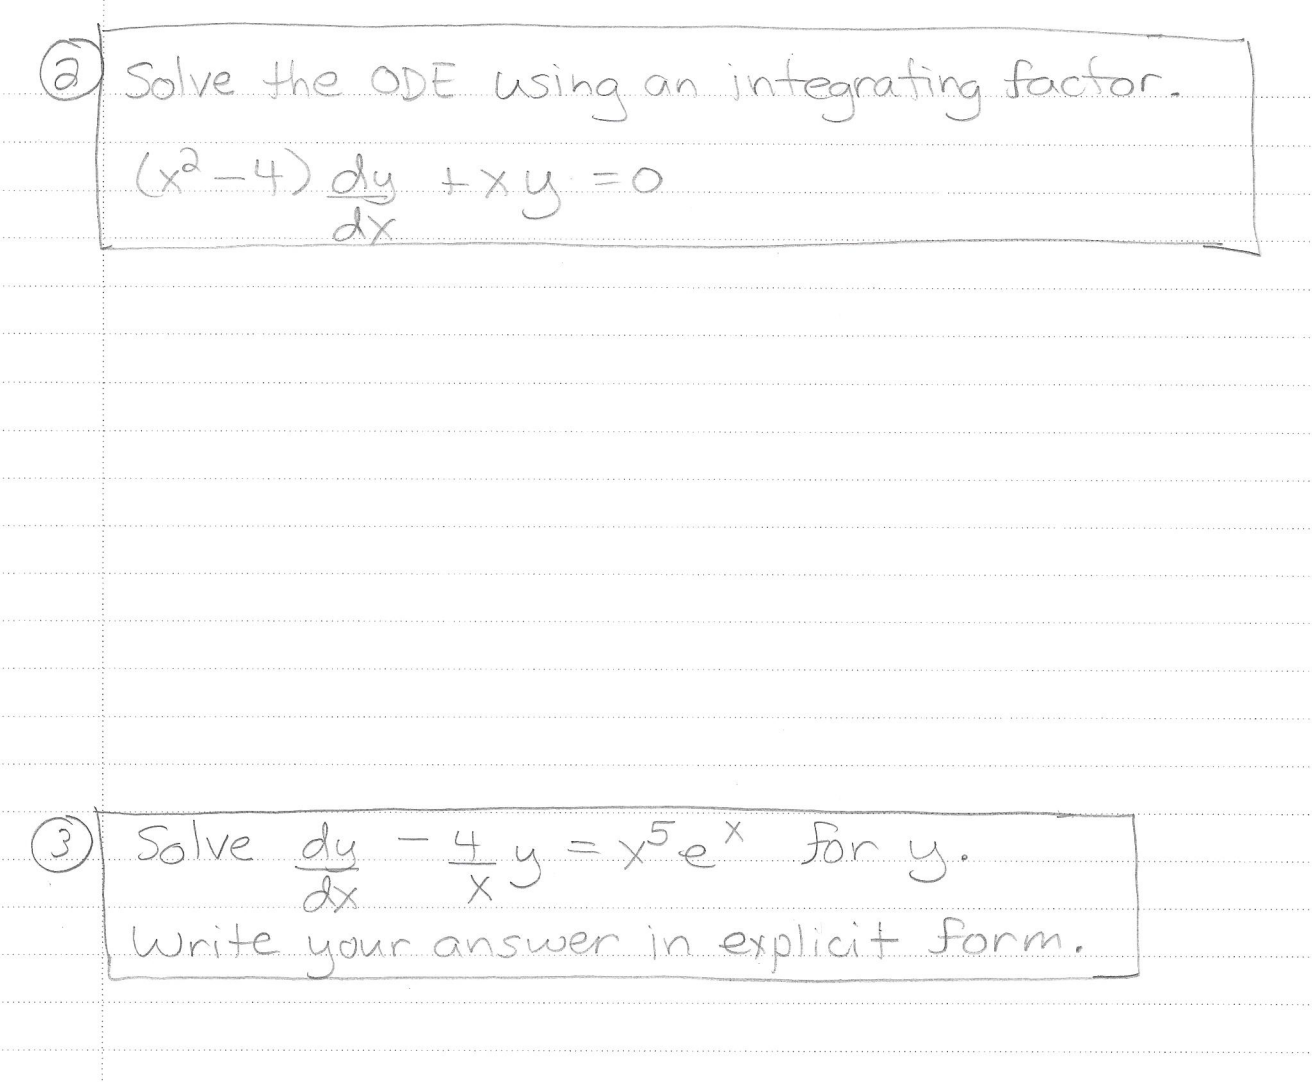 ② Solve the ODE using an integrating factor.
(x² - 4) dy/dx + xy = 0
③ Solve dy/dx - 4/x y = x⁵eˣ for y.
Write your answer in explicit form.